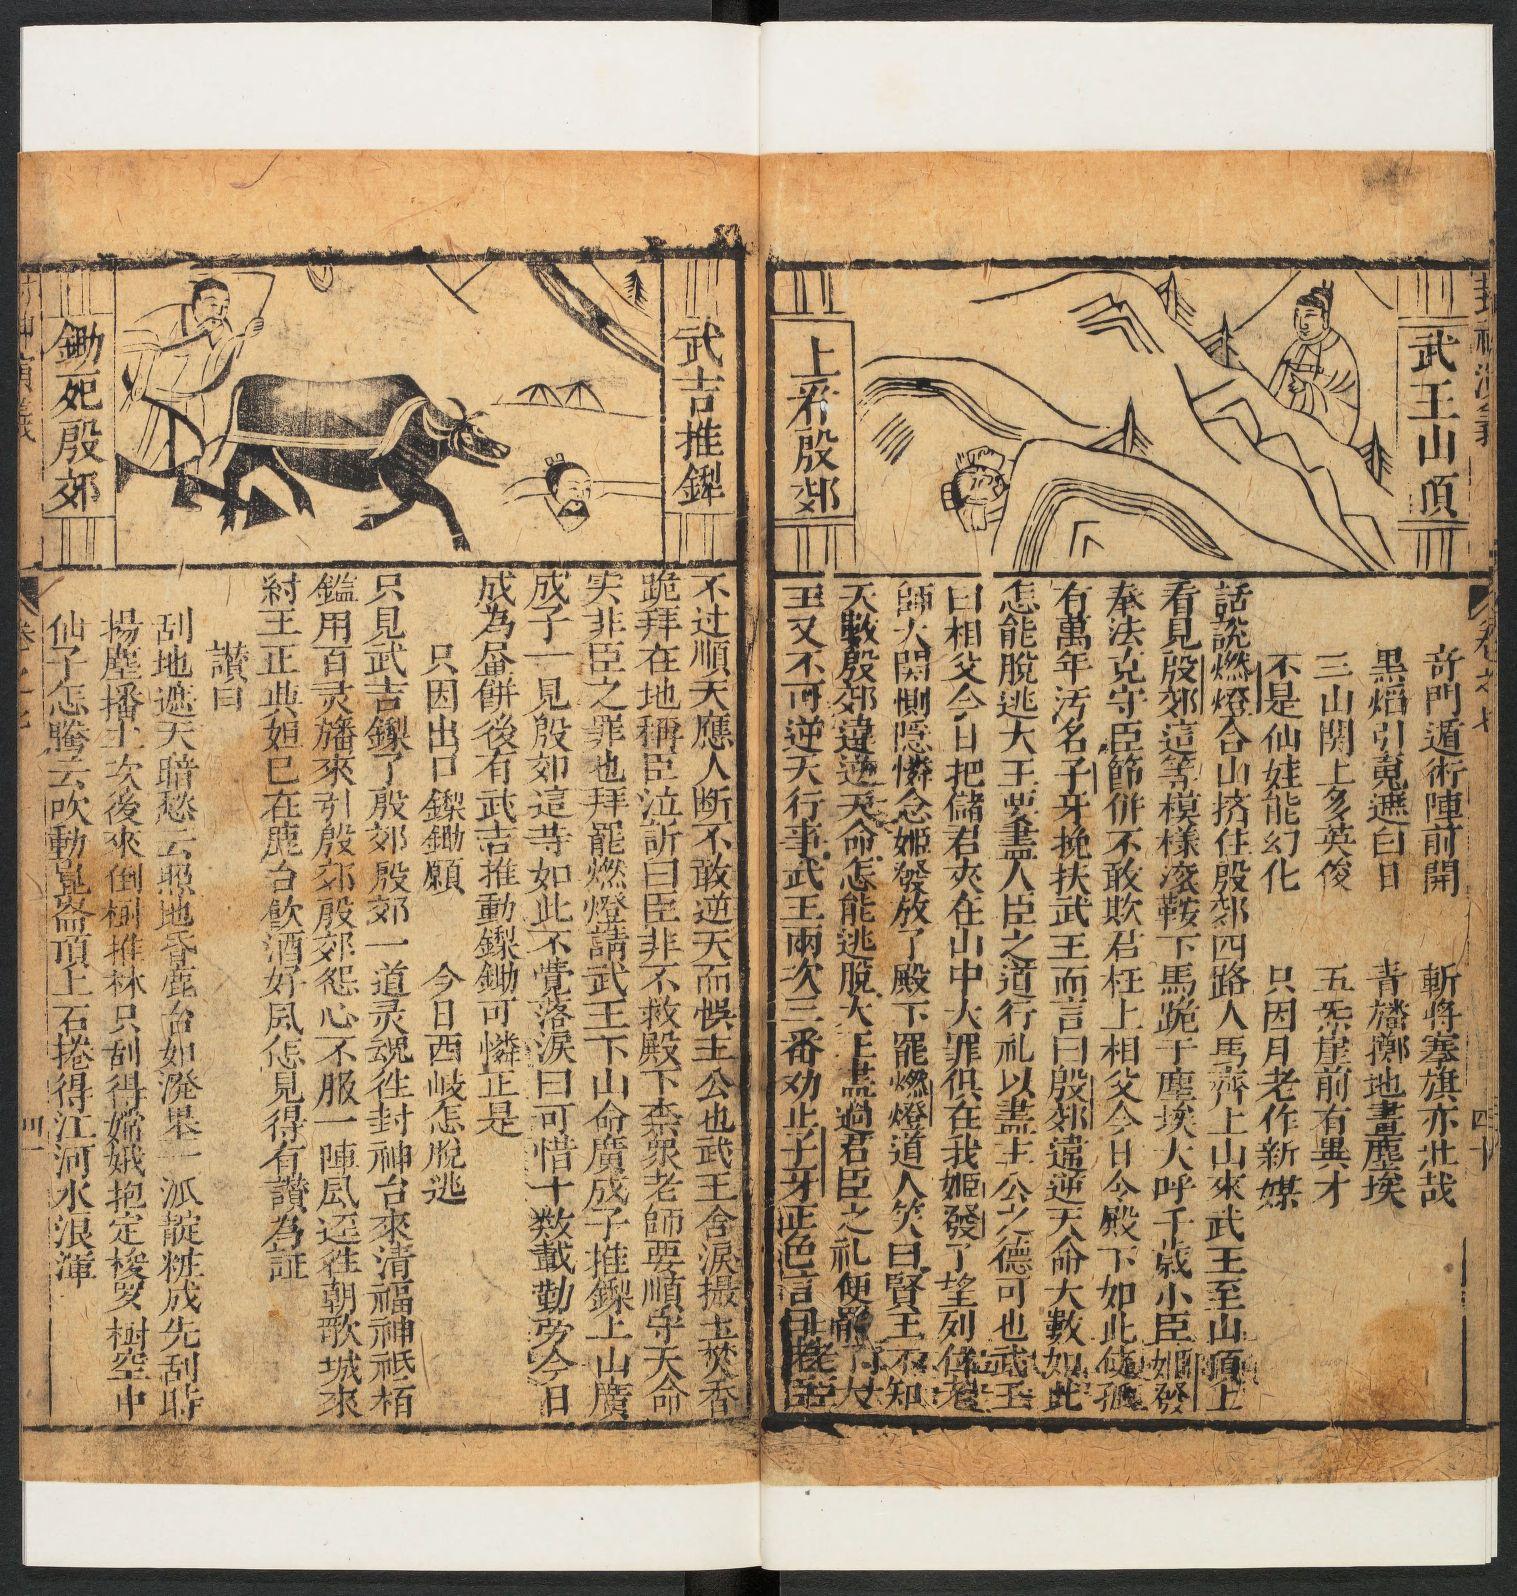 武王山頂
上看殷郊
奇門遁術陣前開　斬將搴旗亦壯哉
黑熖引䰟遮白日　青旛擲地畫塵埃
三山関上多英俊　五炁崖前有異才
不是仙娃能幻化　只因月老作新媒
話說燃燈合山挤住殷郊四路人馬齊上山來武王至山頂上
看見殷郊這等模樣滚鞍下馬跪于塵埃大呼千歲小臣姬發
奉法克守臣節併不敢欺君枉上相父今日令殿下如此使孤
有萬年汚名子牙挽扶武王而言曰殷郊違逆天命大數如此
怎能脫逃大王要盡人臣之道行礼以盡主公之德可也武王
曰相父今日把儲君夾在山中大罪俱在我姬發了望列位老
師大開惻隱憐念姬發放了殿下罷燃燈道人笑曰賢王不知
天數殷郊違逆天命怎能逃脫大王盡過君臣之礼便罷了大
王又不可逆天行事武王兩次三番劝止子牙正色言曰老臣
武吉推鏫
鋤死殷郊
不过順天應人断不敢逆天而悞主公也武王含淚撮土焚香
跪拜在地稱臣泣訴曰臣非不救殿下柰眾老師要順守天命
实非臣之罪也拜罷燃燈請武王下山命廣成子推鏫上山廣
成子一見殷郊這等如此不覺落淚曰可惜十数載勤勞今日
成為畫餅後有武吉推動鏫鋤可憐正是
只因出口鏫鋤願　今日西岐怎脫逃
只見武吉鏫了殷郊殷郊一道灵魂徃封神台來清福神祗栢
鑑用百灵旛來引殷郊殷郊怨心不服一陣風逕徃朝歌城來
紂王正與妲已在鹿台飲酒好風怎見得有讃為証
讃曰
刮地遮天暗愁云照地昏鹿台如潑墨一派靛粧成先刮時
揚塵播土次後來倒樹推林只刮得嫦娥抱定梭罗树空中
仙子怎騰云吹動崑崙頂上石捲得江河水浪渾